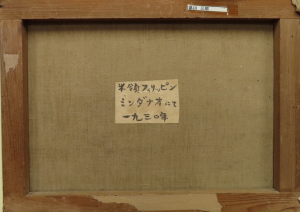 米領フィリッピン
ミンダナオにて
一九三〇年